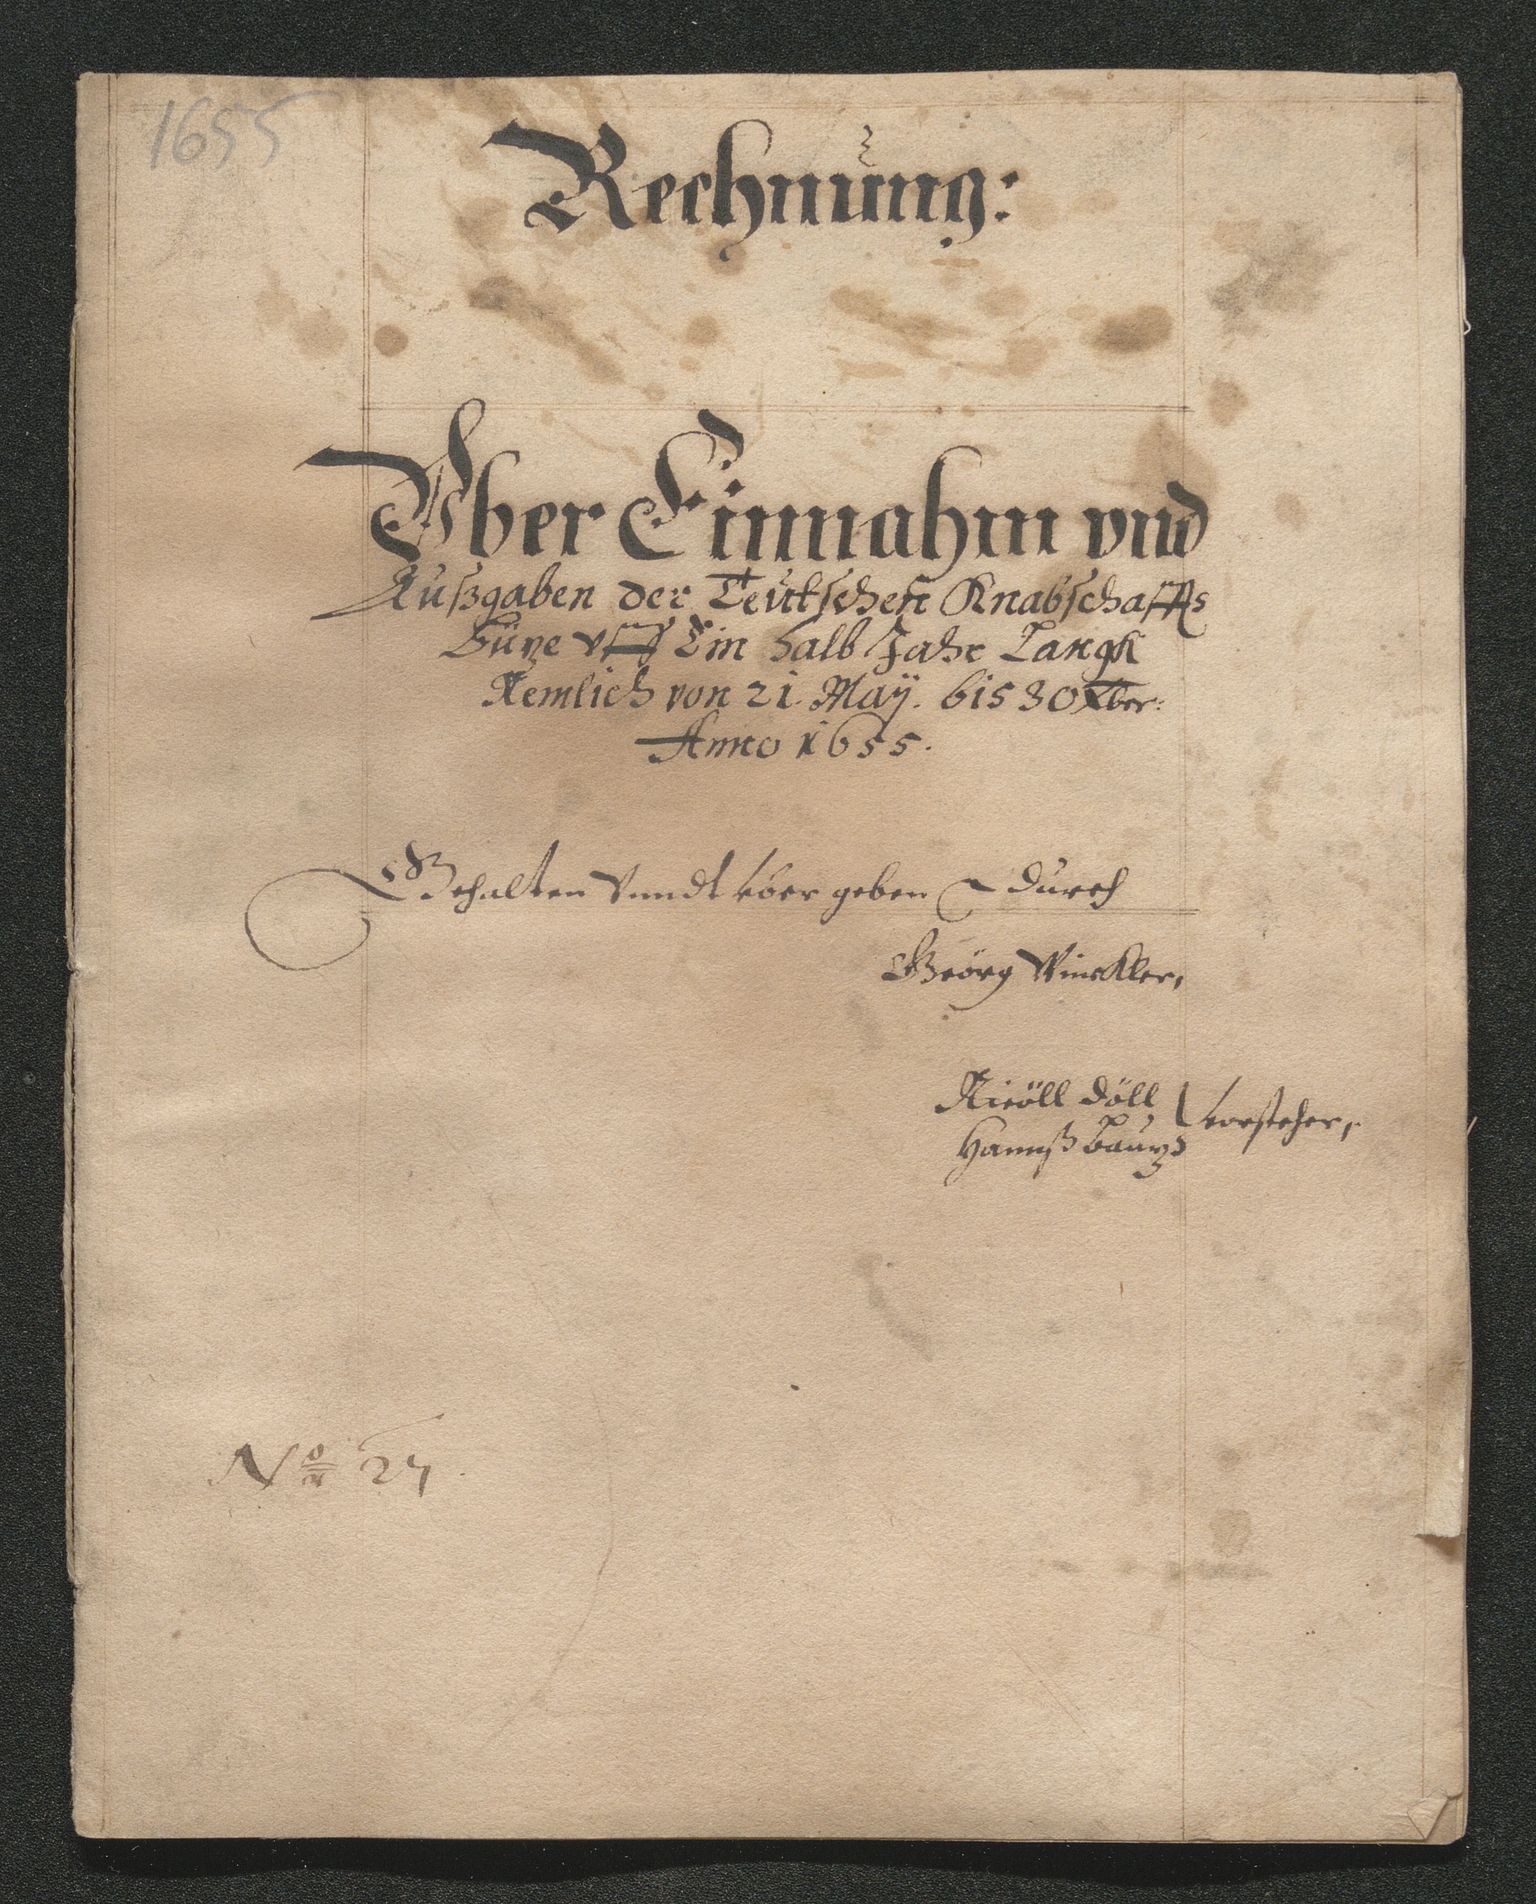 1655
Rechnung:
Vber Einnahm vnd
Außgaben der Teutschen Knabschaffts
Büxe vff Ein halb Jahr Langk
Nemlich von 21. Maÿ. bis 30 Xber:
Anno 1655.
Gehalten Vnndt vber geben durch
Geörg Winckler,
Nicöll Döll
vorsteher,
Hannß
No 27